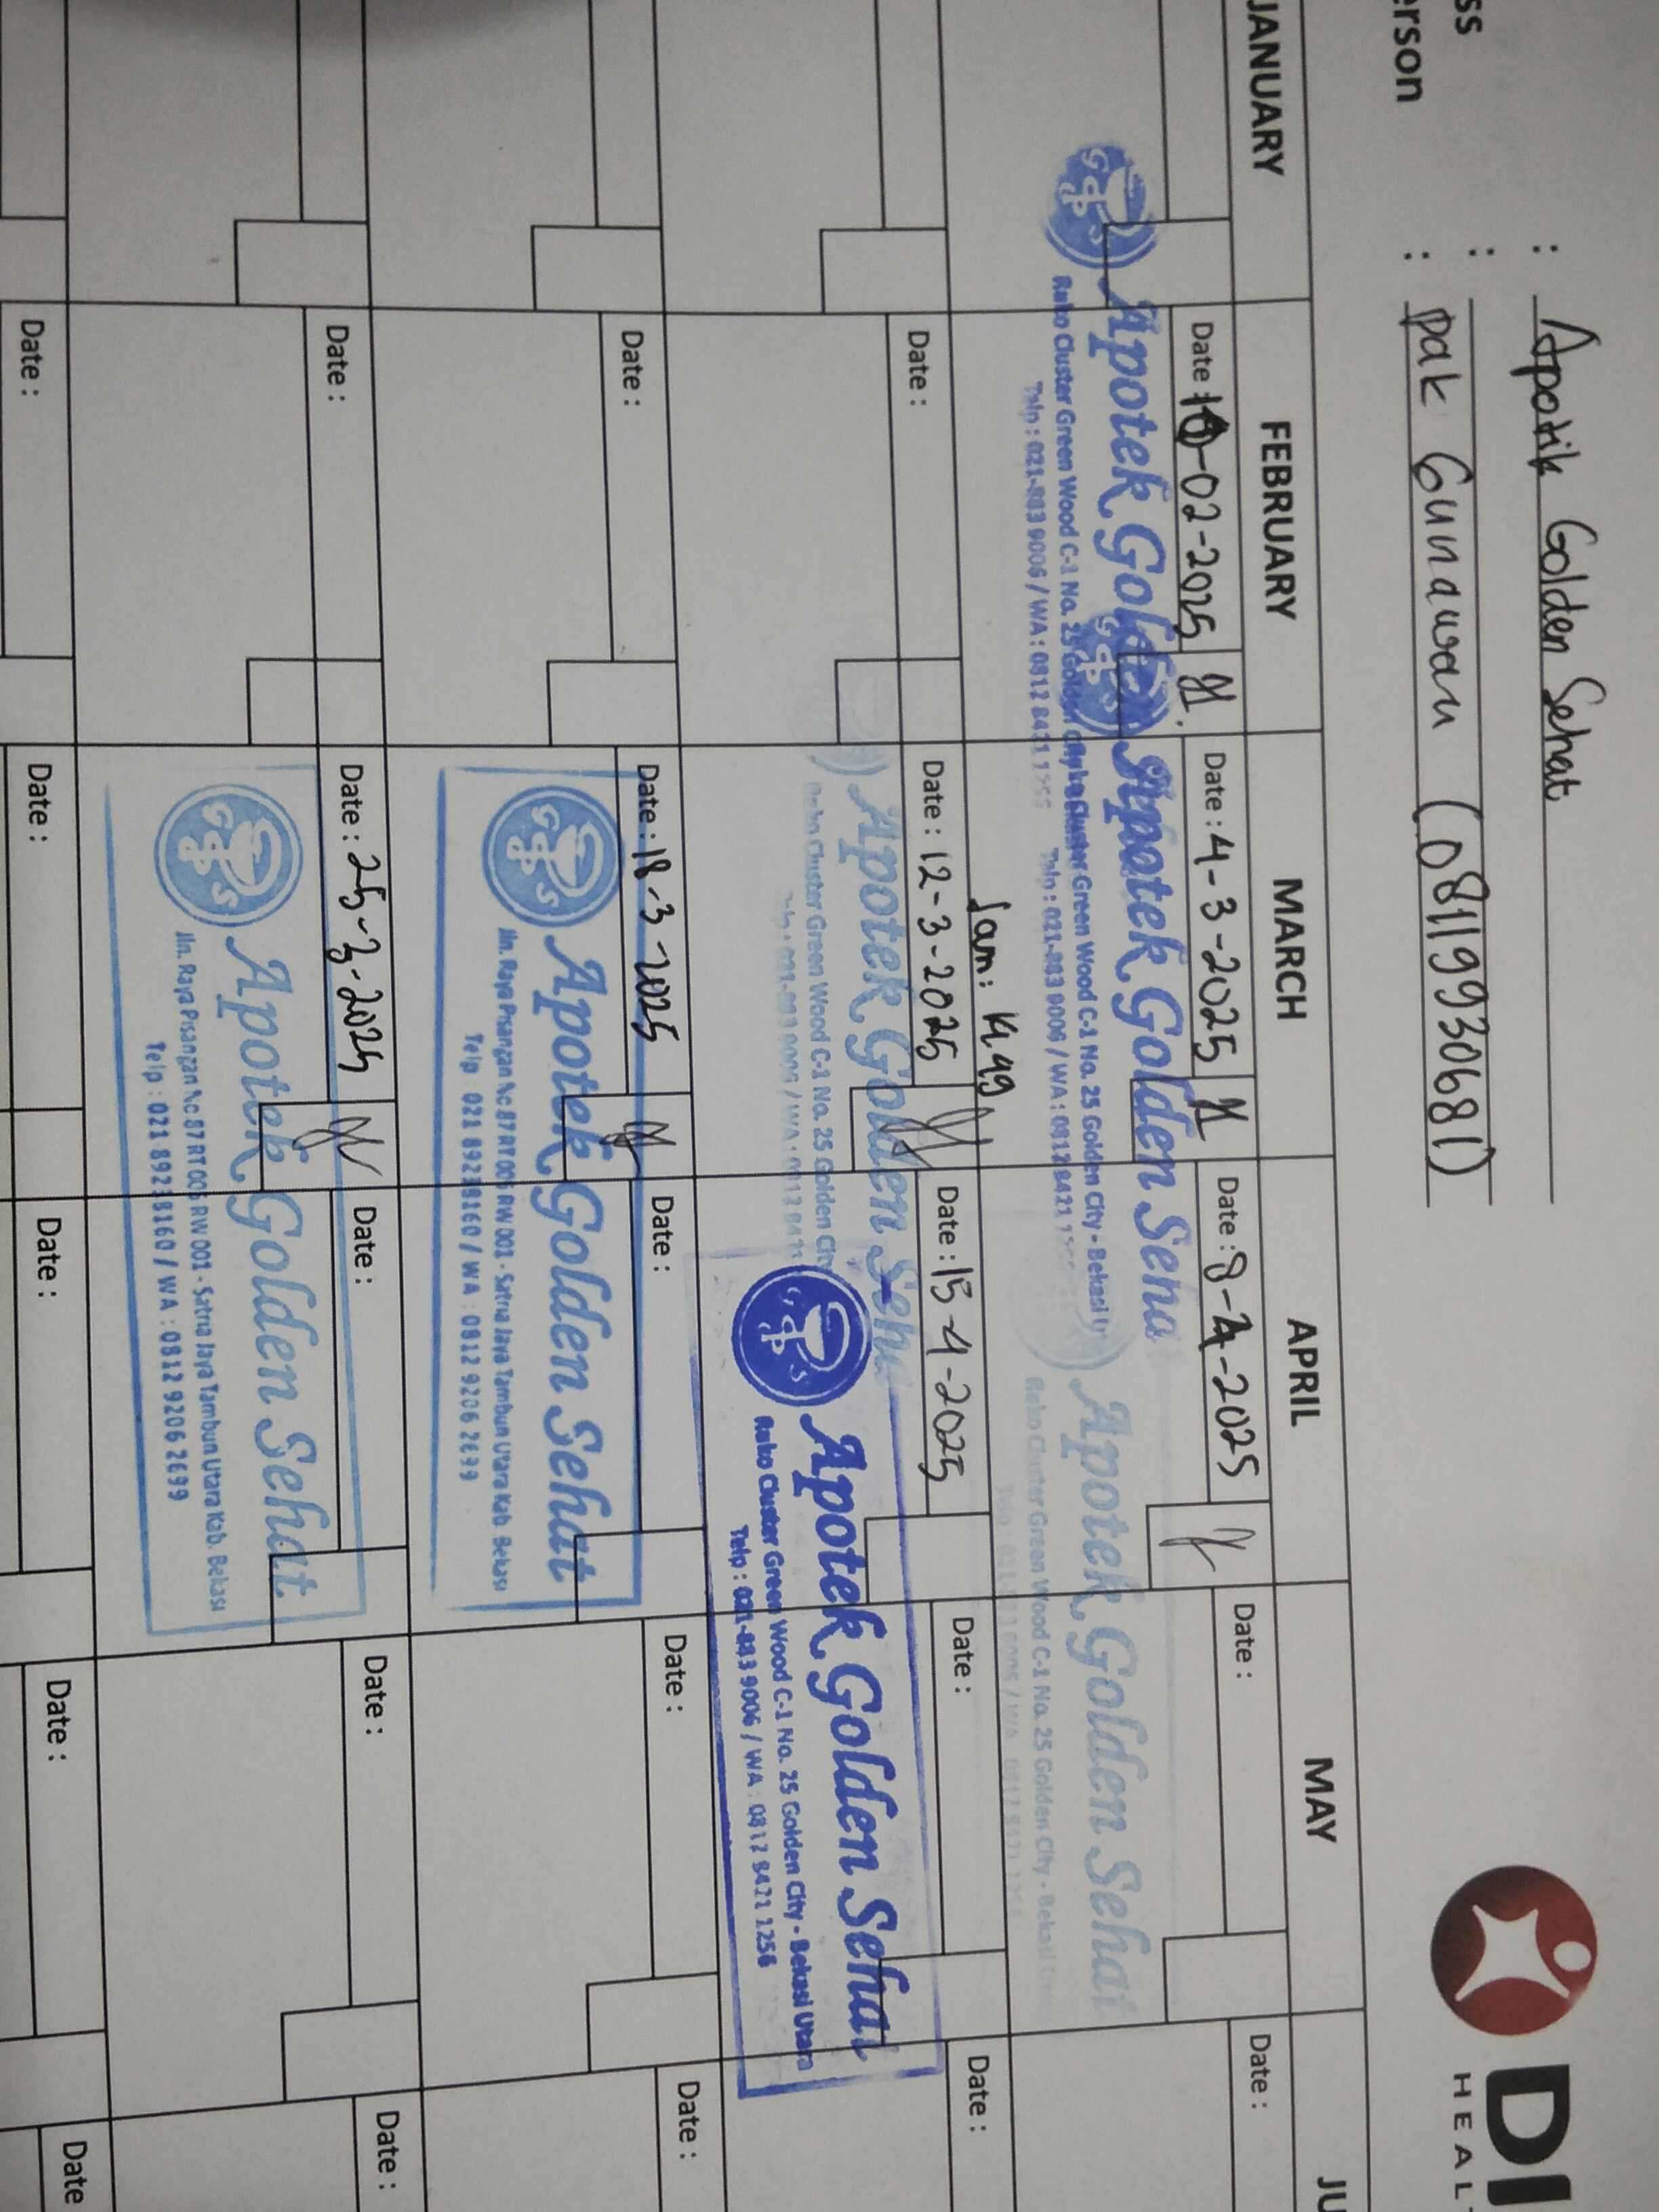 : Apotik Golden Sehat
ss :
erson : pak Gunawan (08119930681)
DI
HEAL
JANUARY FEBRUARY MARCH APRIL MAY JU
Date : -02-2025 Date : 4-3-2025 Date : 8-4-2025 Date : Date :
Apotek Golden Apotek Golden Seha Apotek Golden Sehat
Ruko Cluster Green Wood C-1 No. 25 Golden Ruko Cluster Green Wood C-1 No. 25 Golden City - Bekasi U Ruko Cluster Green Wood C-1 No. 25 Golden City - Bekasi
Telp : 021-883 9006 / WA : 0812 8421 Telp : 021-883 9006 / WA : 0812 8421
Jam: 14.49
Date : Date : 12-3-2025 Date : 15-4-2025 Date : Date :
Apotek Golden Seha Apotek Golden Sehat
Ruko Cluster Green Wood C-1 No. 25 Golden City Ruko Cluster Green Wood C-1 No. 25 Golden City - Bekasi Utara
Telp : 021-883 9006 / WA : 0812 8421 Telp : 021-883 9006 / WA : 0812 8421 1256
Date : Date : 18-3-2025 Date : Date : Date :
Apotek Golden Sehat
Jln. Raya Pisangan No.87 RT 006 RW 001 - Satria Jaya Tambun Utara Kab. Bekasi
Telp : 021 89238160 / WA : 0812 9206 2699
Date : Date : 25-3-2025 Date : Date : Date :
Apotek Golden Sehat
Jln. Raya Pisangan No.87 RT 006 RW 001 - Satria Jaya Tambun Utara Kab. Bekasi
Telp : 021 89238160 / WA : 0812 9206 2699
Date : Date : Date : Date : Date